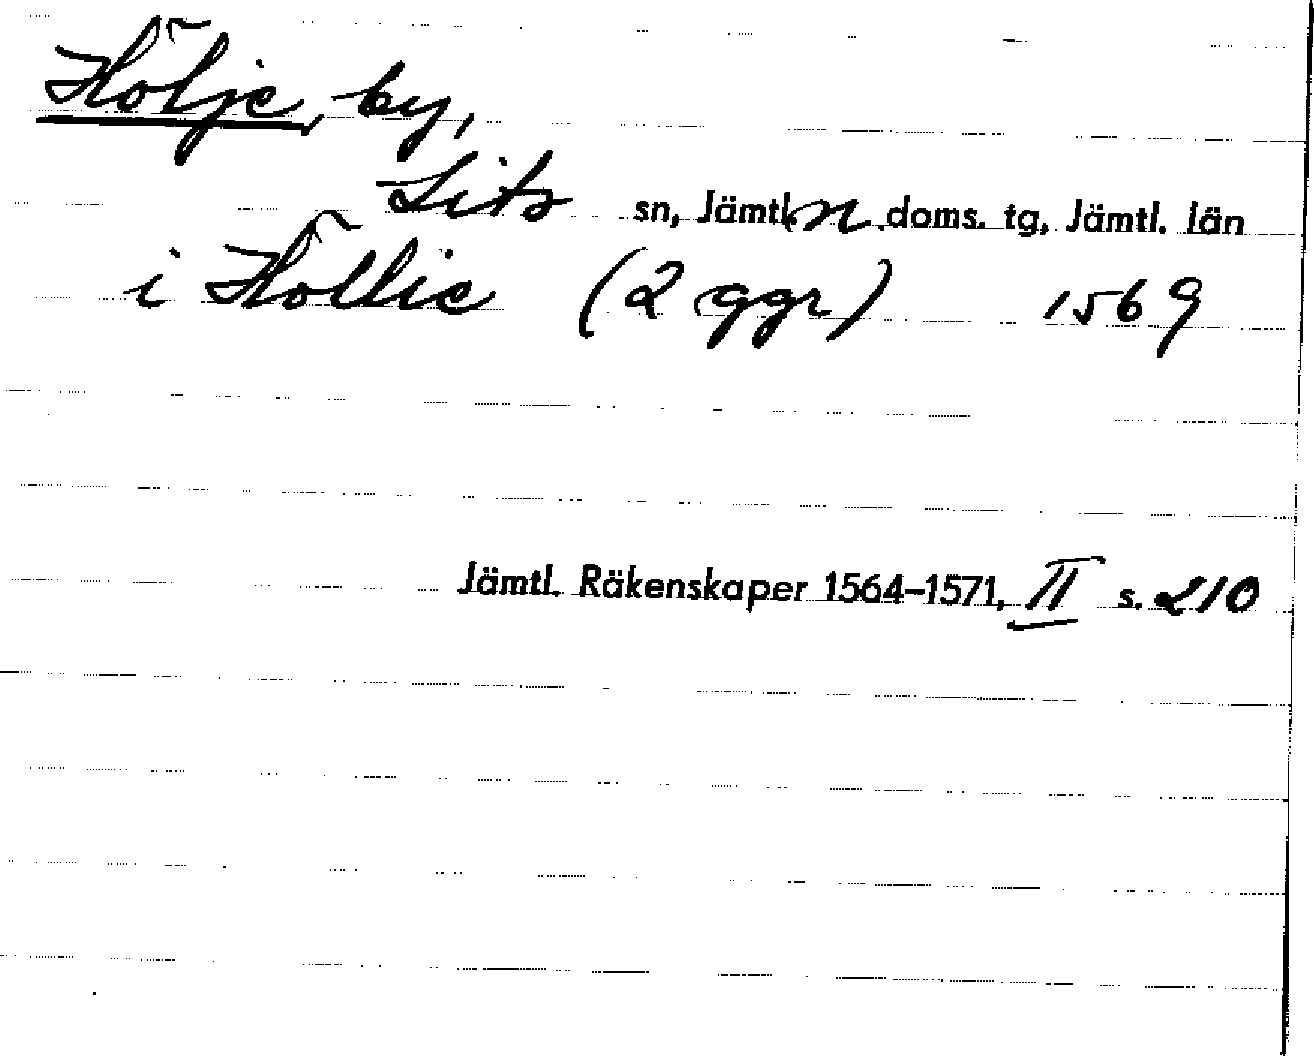 Hölje, by,
Lits sn, Jämtl. n. doms. tg, Jämtl. län
i Höllie (2 ggr) 1569
Jämtl. Räkenskaper 1564–1571, II s. 210